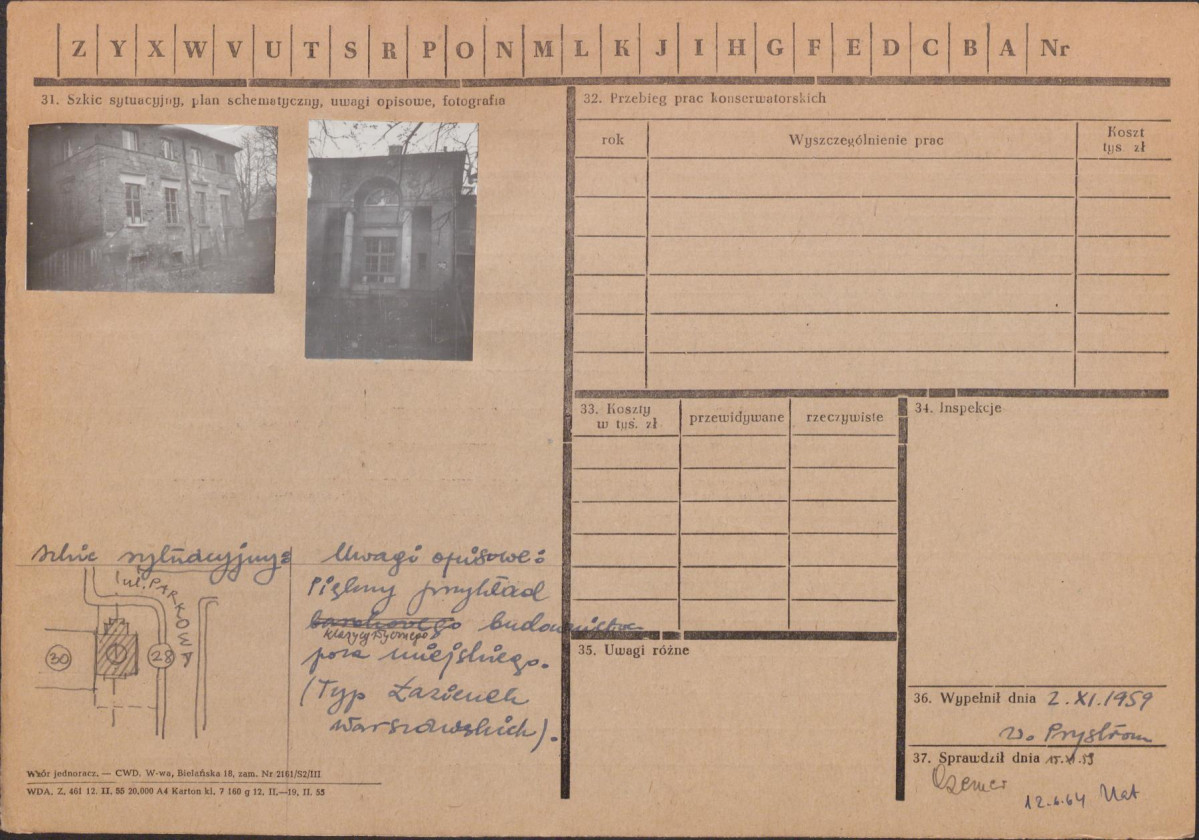 Z Y X W V U T S R P O N M L K J I H G F E D C B A Nr
31. Szkic sytuacyjny, plan schematyczny, uwagi opisowe, fotografia
szkic sytuacyjny:
ul. PARKOWA
30
1
28
Uwagi opisowe:
Piękny przykład
barokowego budownictwa
klasycystycznego
poza miejskiego.
(Typ Łazienek
Warszawskich).
Wzór jednoracz. — CWD. W-wa, Bielańska 18, zam. Nr 2161/S2/III
WDA. Z. 461 12. II. 55 20.000 A4 Karton kl. 7 160 g 12. II.—19. II. 55
32. Przebieg prac konserwatorskich
rok
Wyszczególnienie prac
Koszt
tys. zł
33. Koszty
w tyś. zł
przewidywane
rzeczywiste
34. Inspekcje
35. Uwagi różne
36. Wypełnił dnia 2.XI.1959
37. Sprawdził dnia 15.XI.59
12.6.64